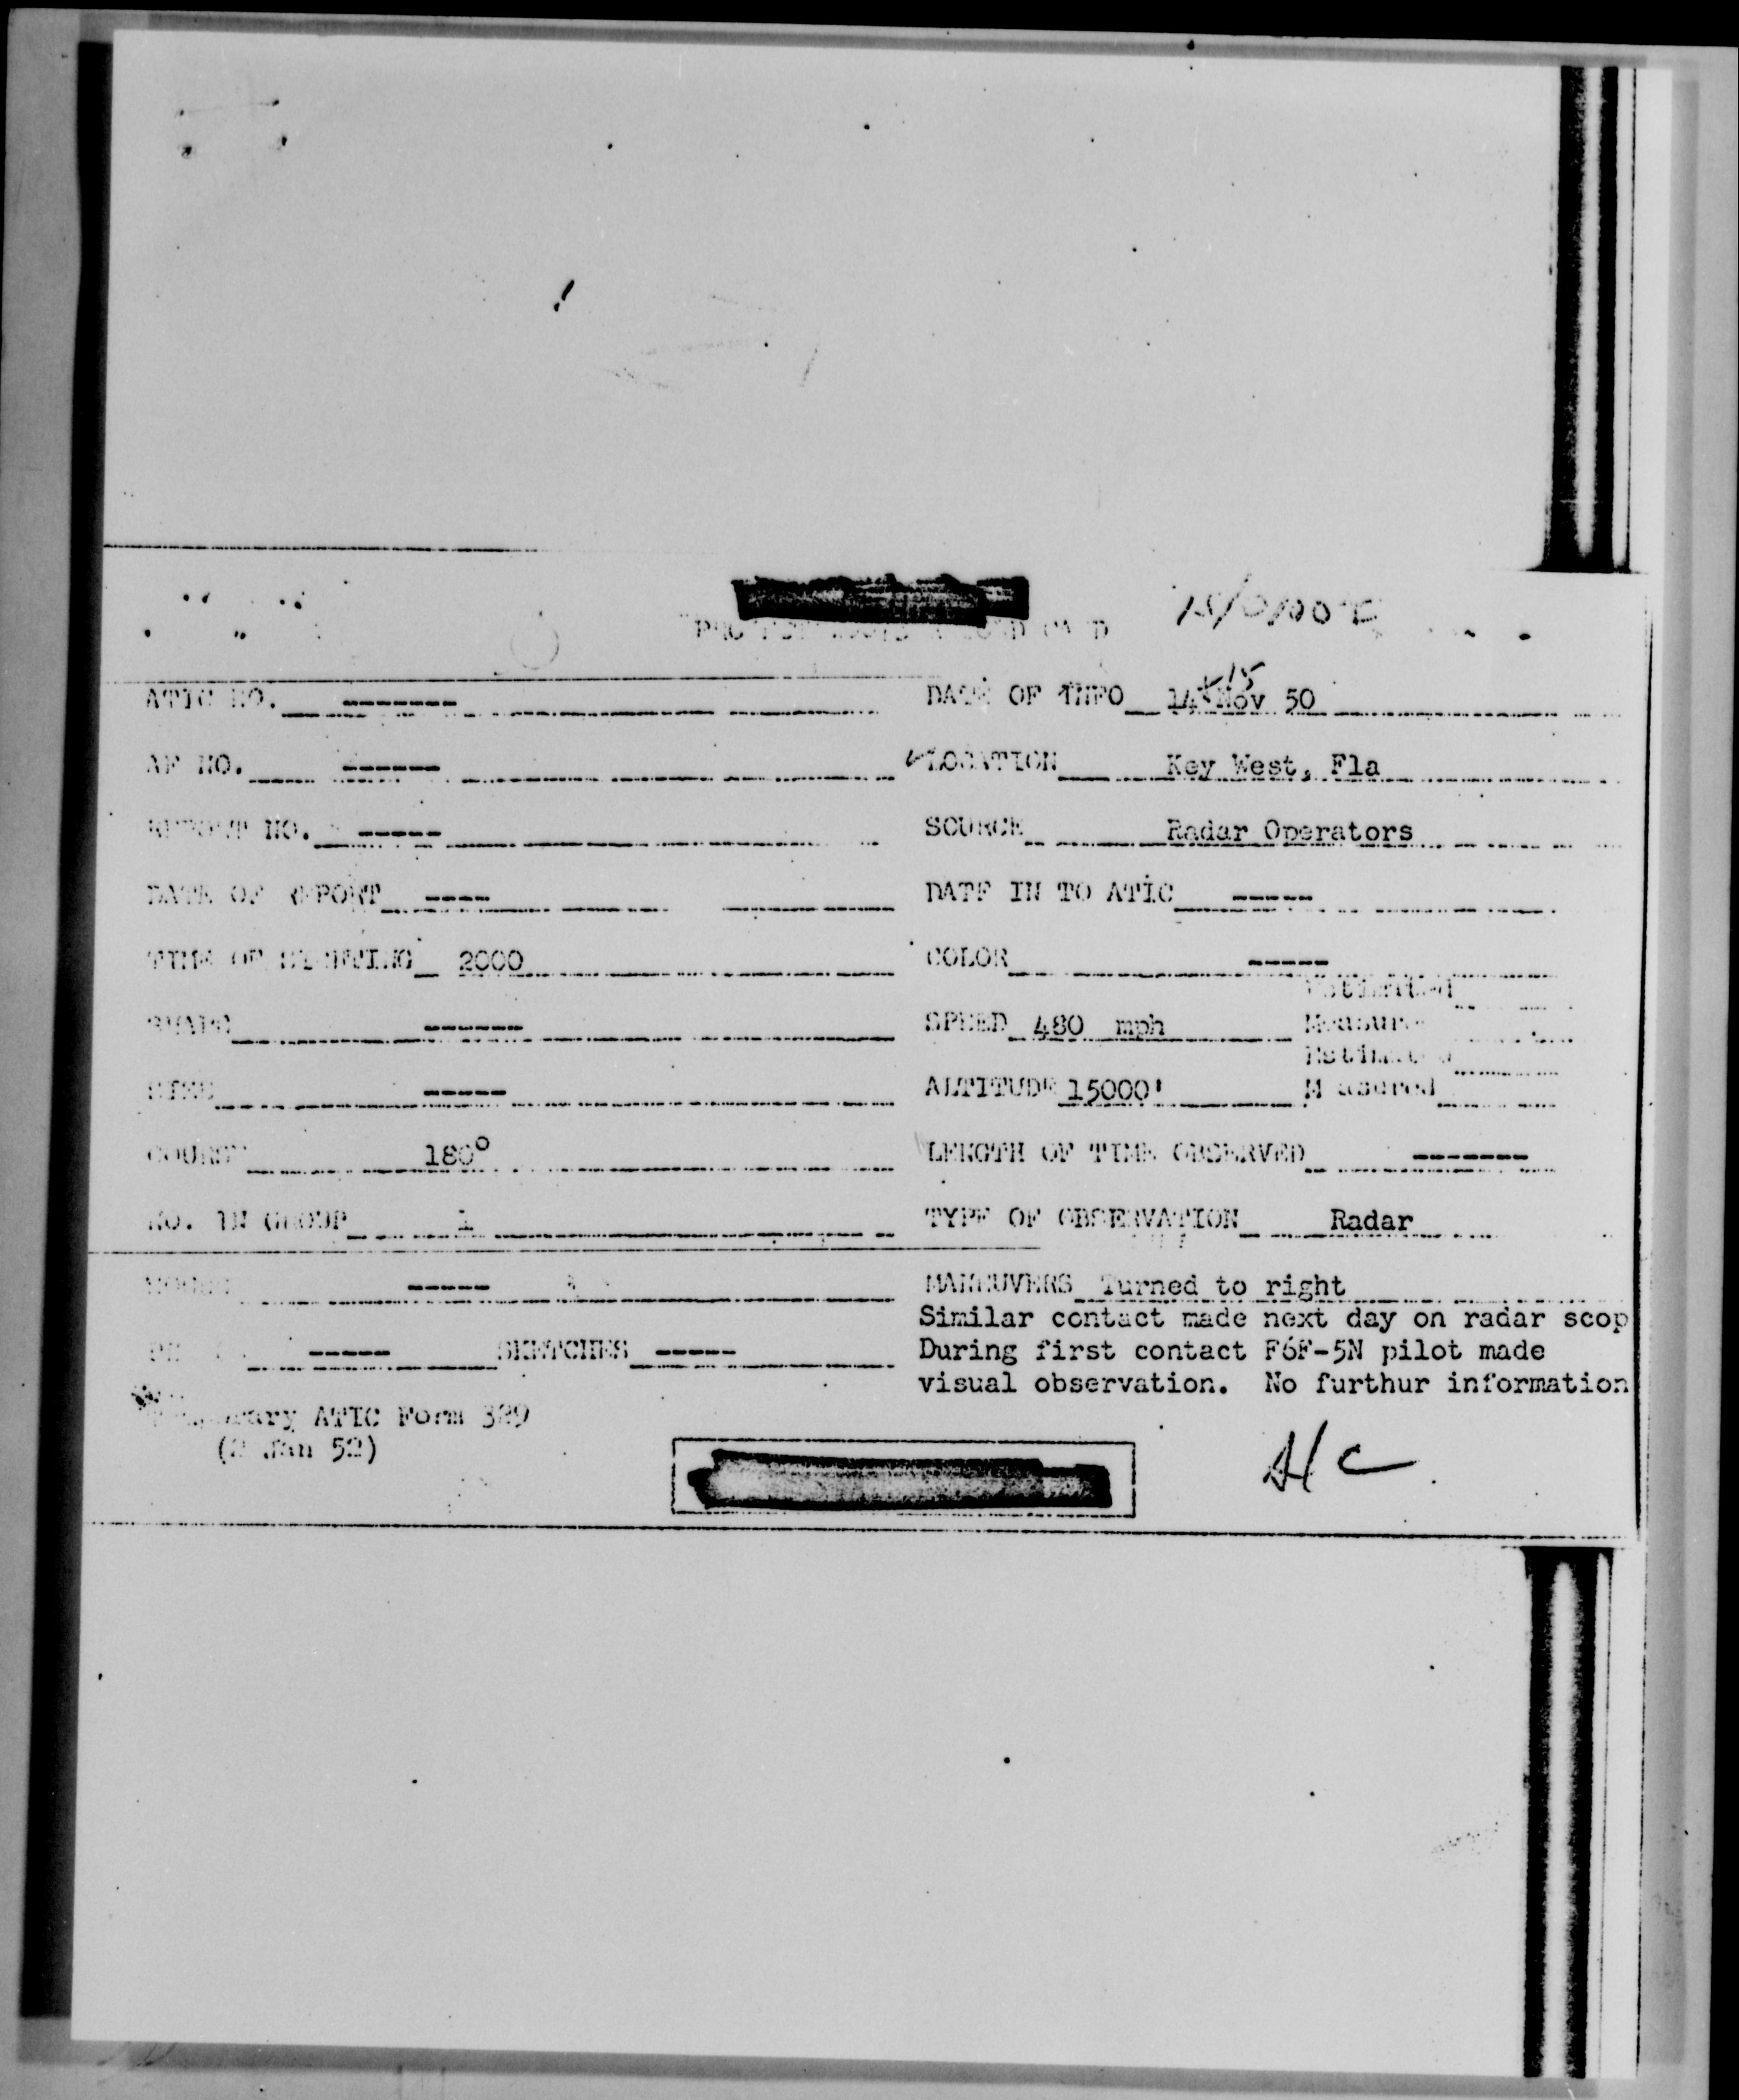 15/0100Z
ATIC NO. ------- DATE OF INFO 14 + 15 Nov 50
AF NO. ------ LOCATION Key West, Fla
REPORT NO. ----- SOURCE Radar Operators
DATE OF REPORT ---- DATE IN TO ATIC -----
TIME OF SIGHTING 2000 COLOR -----
Estimated
SHAPE ------ SPEED 480 mph Measured
Estimated
SIZE ----- ALTITUDE 15000' Measured
COURSE 180° LENGTH OF TIME OBSERVED -------
NO. IN GROUP 1 TYPE OF OBSERVATION Radar
----- MANEUVERS Turned to right
Similar contact made next day on radar scop
----- SKETCHES ----- During first contact F6F-5N pilot made
visual observation. No furthur information
Temporary ATIC Form 329
(2 Jan 52)
A/C